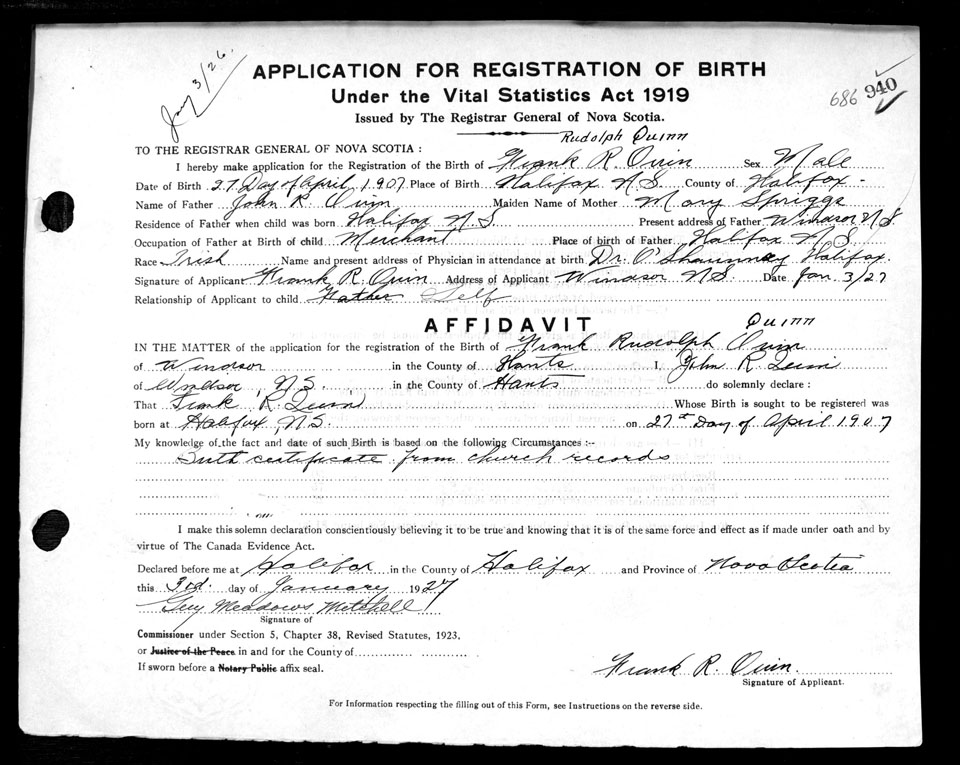 Jany 3/26.
APPLICATION FOR REGISTRATION OF BIRTH
Under the Vital Statistics Act 1919
686 940
Issued by The Registrar General of Nova Scotia.
Rudolph Quinn
TO THE REGISTRAR GENERAL OF NOVA SCOTIA :
I hereby make application for the Registration of the Birth of Frank R. Quin Sex Male
Date of Birth 27 Day of April 1907 Place of Birth Halifax N S. County of Halifax
Name of Father John R. Quinn Maiden Name of Mother Mary Spriggs
Residence of Father when child was born Halifax N.S. Present address of Father Windsor N S
Occupation of Father at Birth of child Merchant Place of birth of Father Halifax N S
Race Irish Name and present address of Physician in attendance at birth Dr. O'Shaunnay Halifax.
Signature of Applicant Frank R. Quin Address of Applicant Windsor N S. Date Jan. 3/27
Relationship of Applicant to child Father Self
AFFIDAVIT Quinn
IN THE MATTER of the application for the registration of the Birth of Frank Rudolph Quinn
of Windsor in the County of Hants I, John R. Quin
of Windsor, N.S. in the County of Hants do solemnly declare :
That Frank R. Quin Whose Birth is sought to be registered was
born at Halifax, N.S. on 27th Day of April 1907
My knowledge of the fact and date of such Birth is based on the following Circumstances :-
certificate from church records
I make this solemn declaration conscientiously believing it to be true and knowing that it is of the same force and effect as if made under oath and by
virtue of The Canada Evidence Act.
Declared before me at Halifax in the County of Halifax and Province of Nova Scotia
this 3rd. day of January 1927
Guy Meadows Mitchell
Signature of
Commissioner under Section 5, Chapter 38, Revised Statutes, 1923.
or Justice of the Peace in and for the County of
If sworn before a Notary Public affix seal.
Frank R. Quin.
Signature of Applicant.
For Information respecting the filling out of this Form, see Instructions on the reverse side.